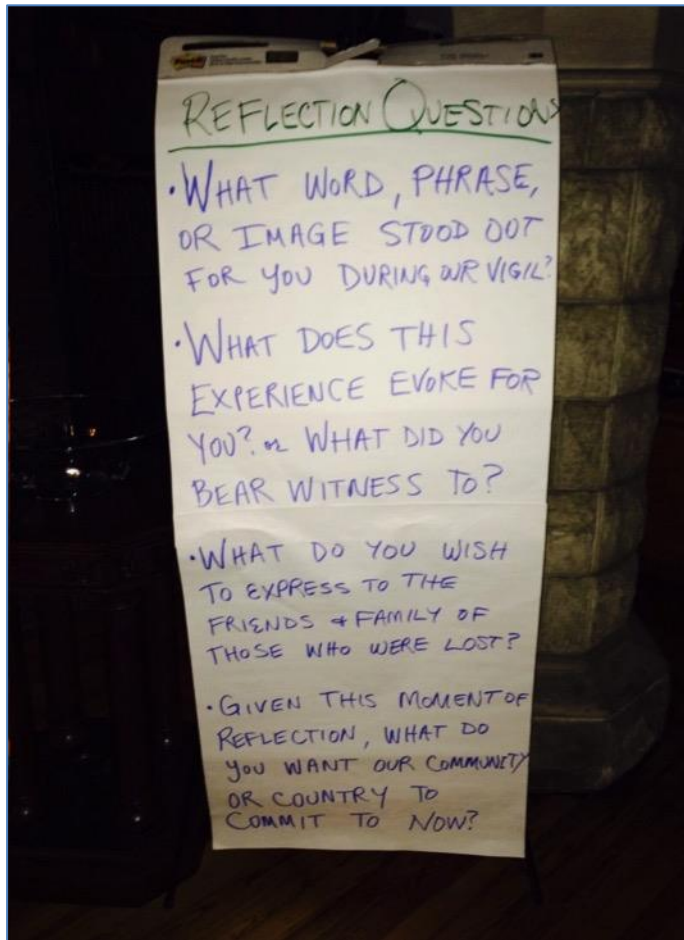 Post-it
REFLECTION QUESTIONS
• WHAT WORD, PHRASE,
OR IMAGE STOOD OUT
FOR YOU DURING OUR VIGIL?
• WHAT DOES THIS
EXPERIENCE EVOKE FOR
YOU? or WHAT DID YOU
BEAR WITNESS TO?
• WHAT DO YOU WISH
TO EXPRESS TO THE
FRIENDS & FAMILY OF
THOSE WHO WERE LOST?
• GIVEN THIS MOMENT OF
REFLECTION, WHAT DO
YOU WANT OUR COMMUNITY
OR COUNTRY TO
COMMIT TO NOW?